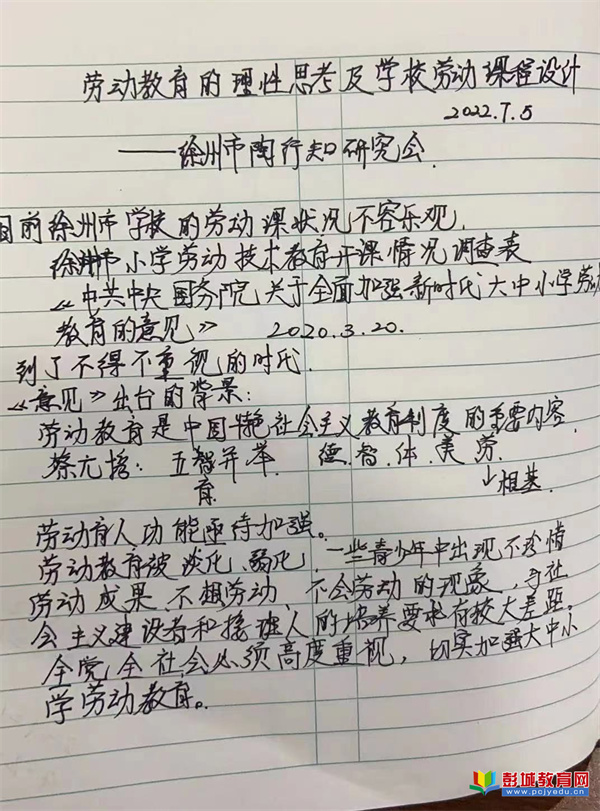 劳动教育的理性思考及学校劳动课程设计
2022.7.5
——徐州市陶行知研究会
目前徐州市学校的劳动课状况不容乐观.
徐州市小学劳动技术教育开课情况调查表
《中共中央国务院关于全面加强新时代大中小学劳动
教育的意见》 2020.3.20.
到了不得不重视的时代.
《意见》出台的背景:
劳动教育是中国特色社会主义教育制度的重要内容.
蔡元培: 五智并举 德.智.体.美.劳
育 ↓根基.
劳动育人功能亟待加强。
劳动教育被淡化、弱化, 一些青少年中出现不珍惜
劳动成果、不想劳动、不会劳动的现象,与社
会主义建设者和接班人的培养要求有较大差距。
全党全社会必须高度重视, 切实加强大中小
学劳动教育。
彭城教育网
www.pcjyedu.cn